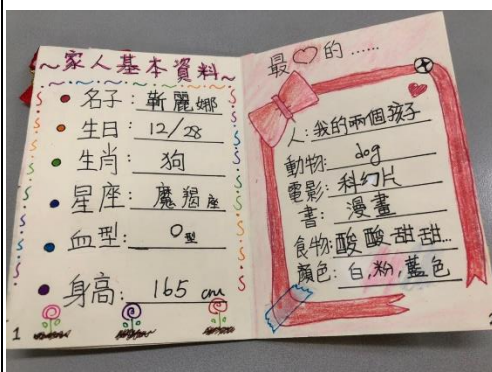 ~家人基本資料~
名子: 靳麗娜
生日: 12/28
生肖: 狗
星座: 魔羯座
血型: O型
身高: 165 cm
1
最♡的……
人: 我的兩個孩子
動物: dog
電影: 科幻片
書: 漫畫
食物: 酸酸甜甜...
顏色: 白,粉,藍色